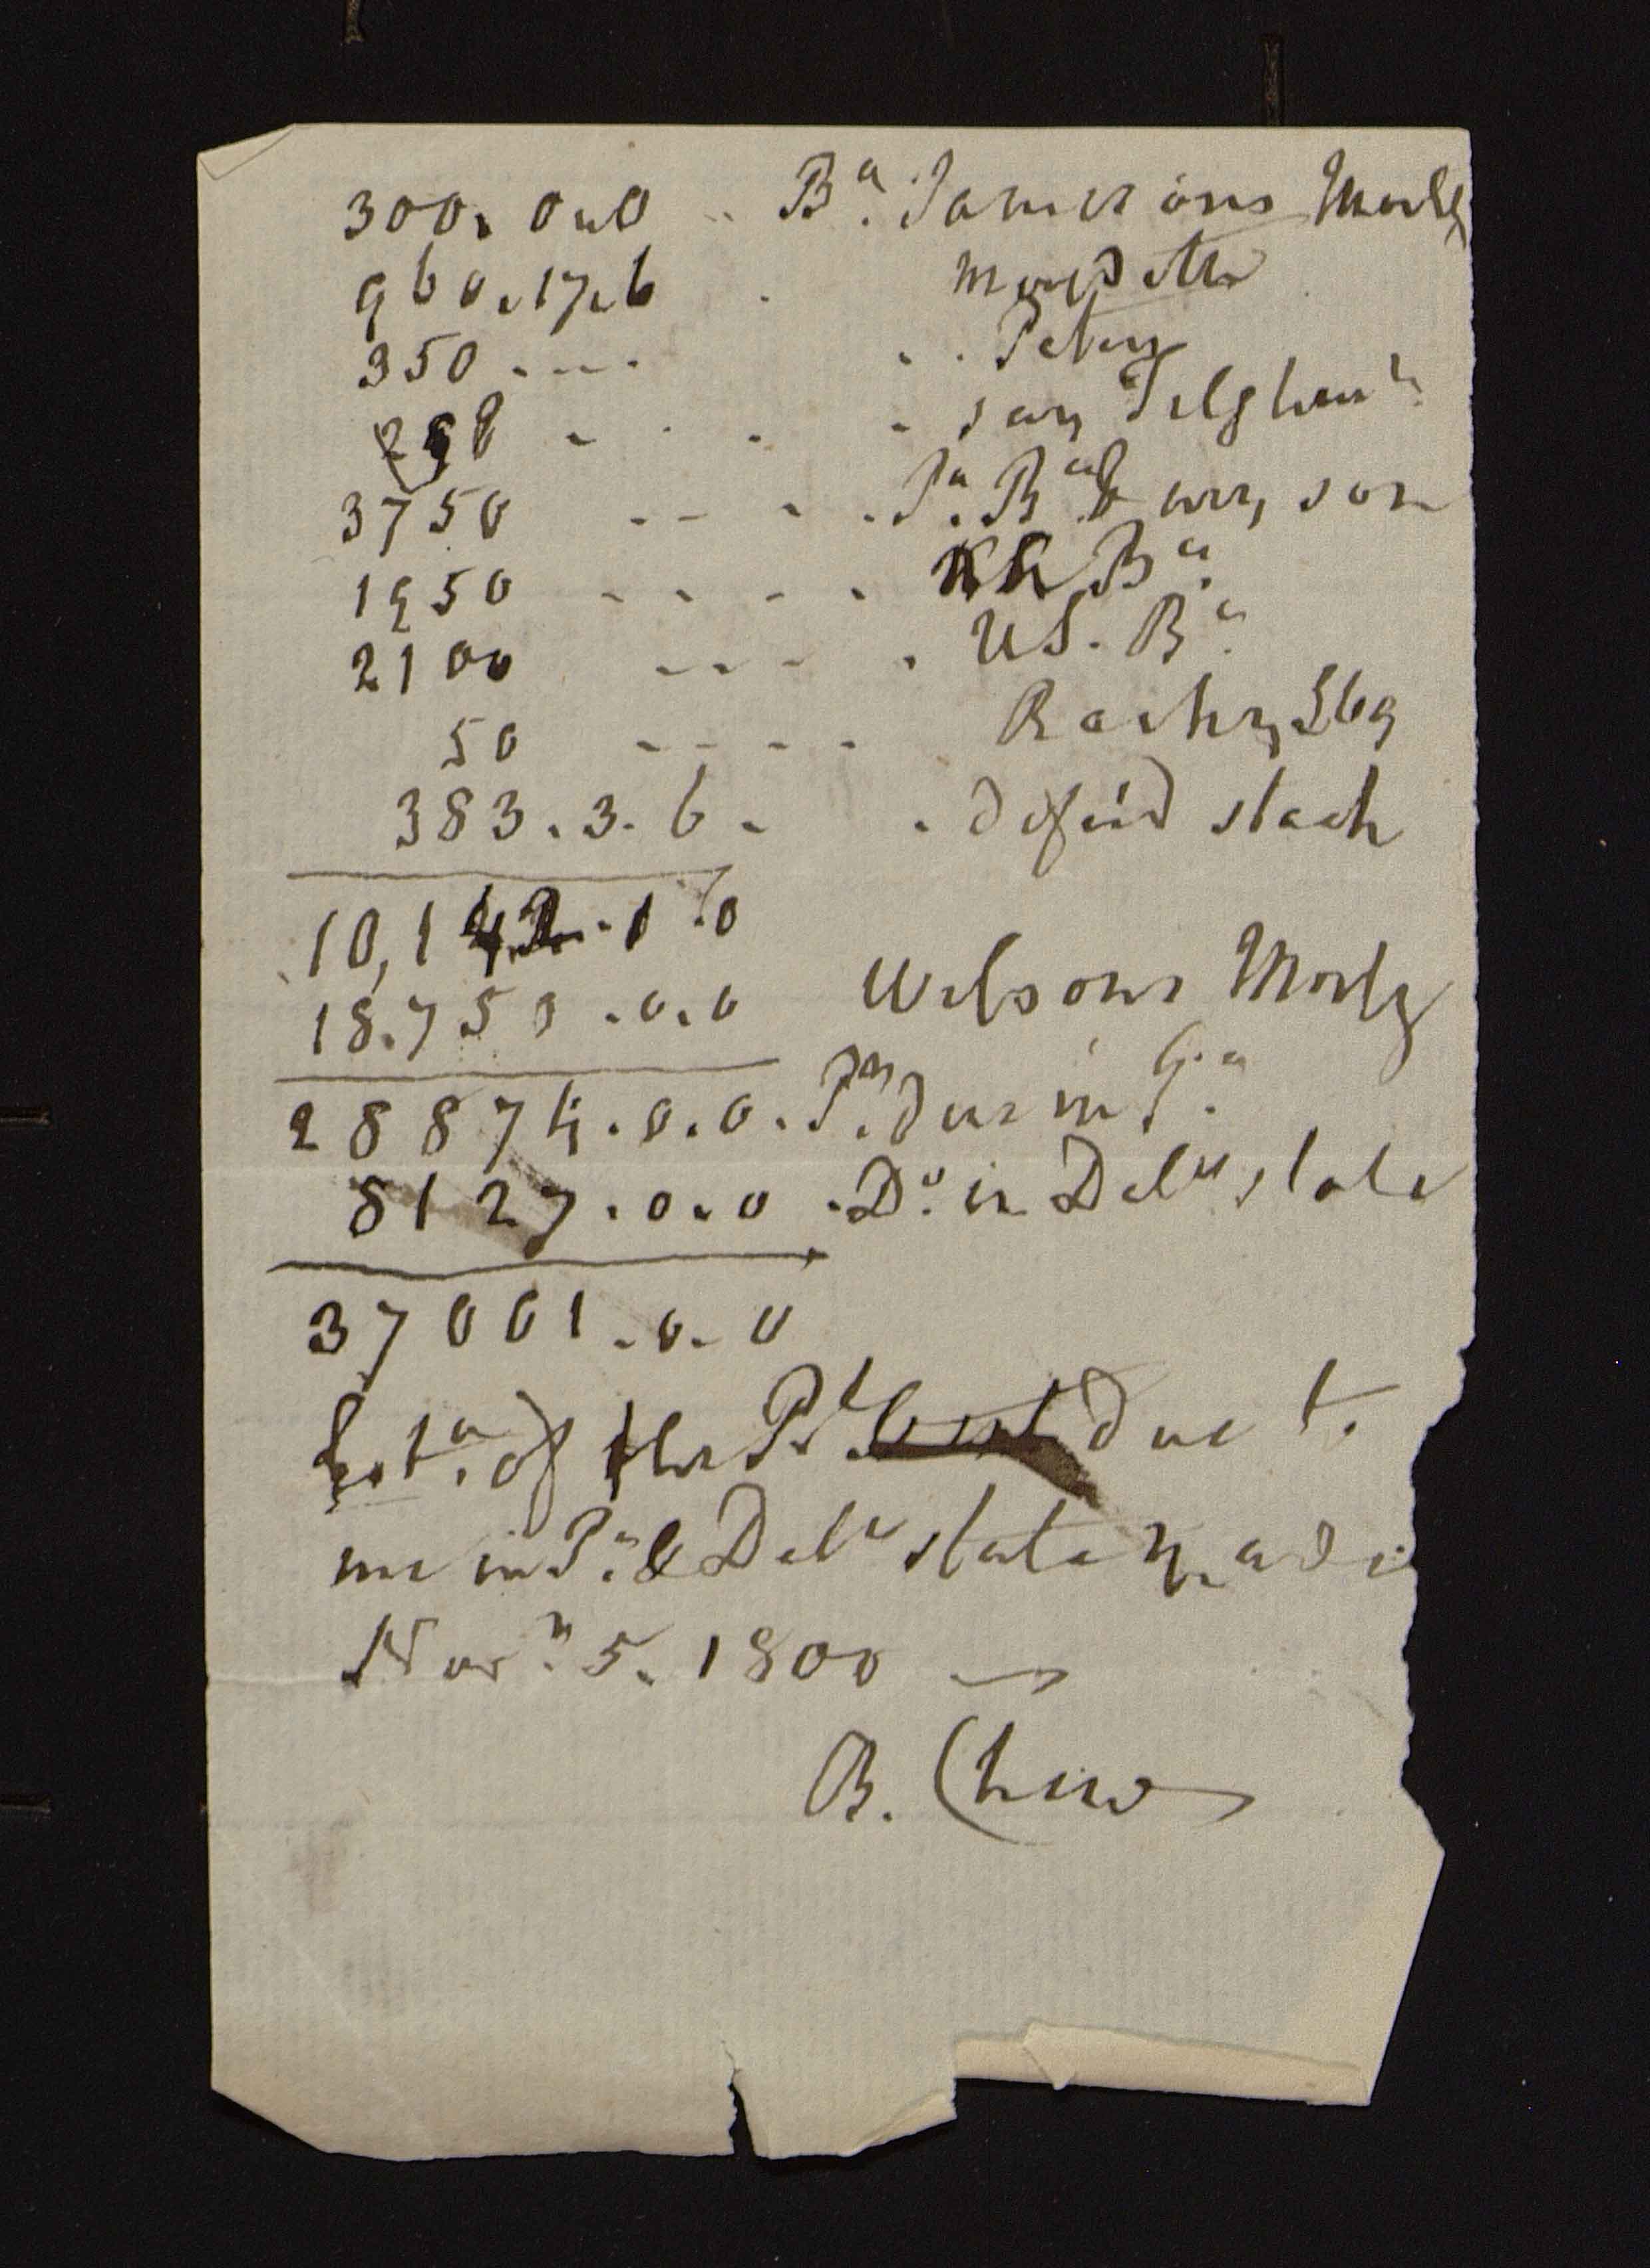 300. 0. 0 .. Ba. Jamesons Mortg
960. 17. 6 .
350 .... . . Peters
298 - . . - Tilghman
3750 -- - . Pa. Ba
1950 - - - . Ba.
2100 --- . US. Ba.
50 - - - -
383. 3. 6 - . defer'd stock
10,142. 1. 0
18.750. 0. 0 Wilsons Mortg
28874. 0. 0. due in Pa.
8127. 0. 0 . Do. in Dele state
37001. 0. 0
Esta. of the due to
me in Pa. & Dele state made
Novr. 5. 1800
B. Chew